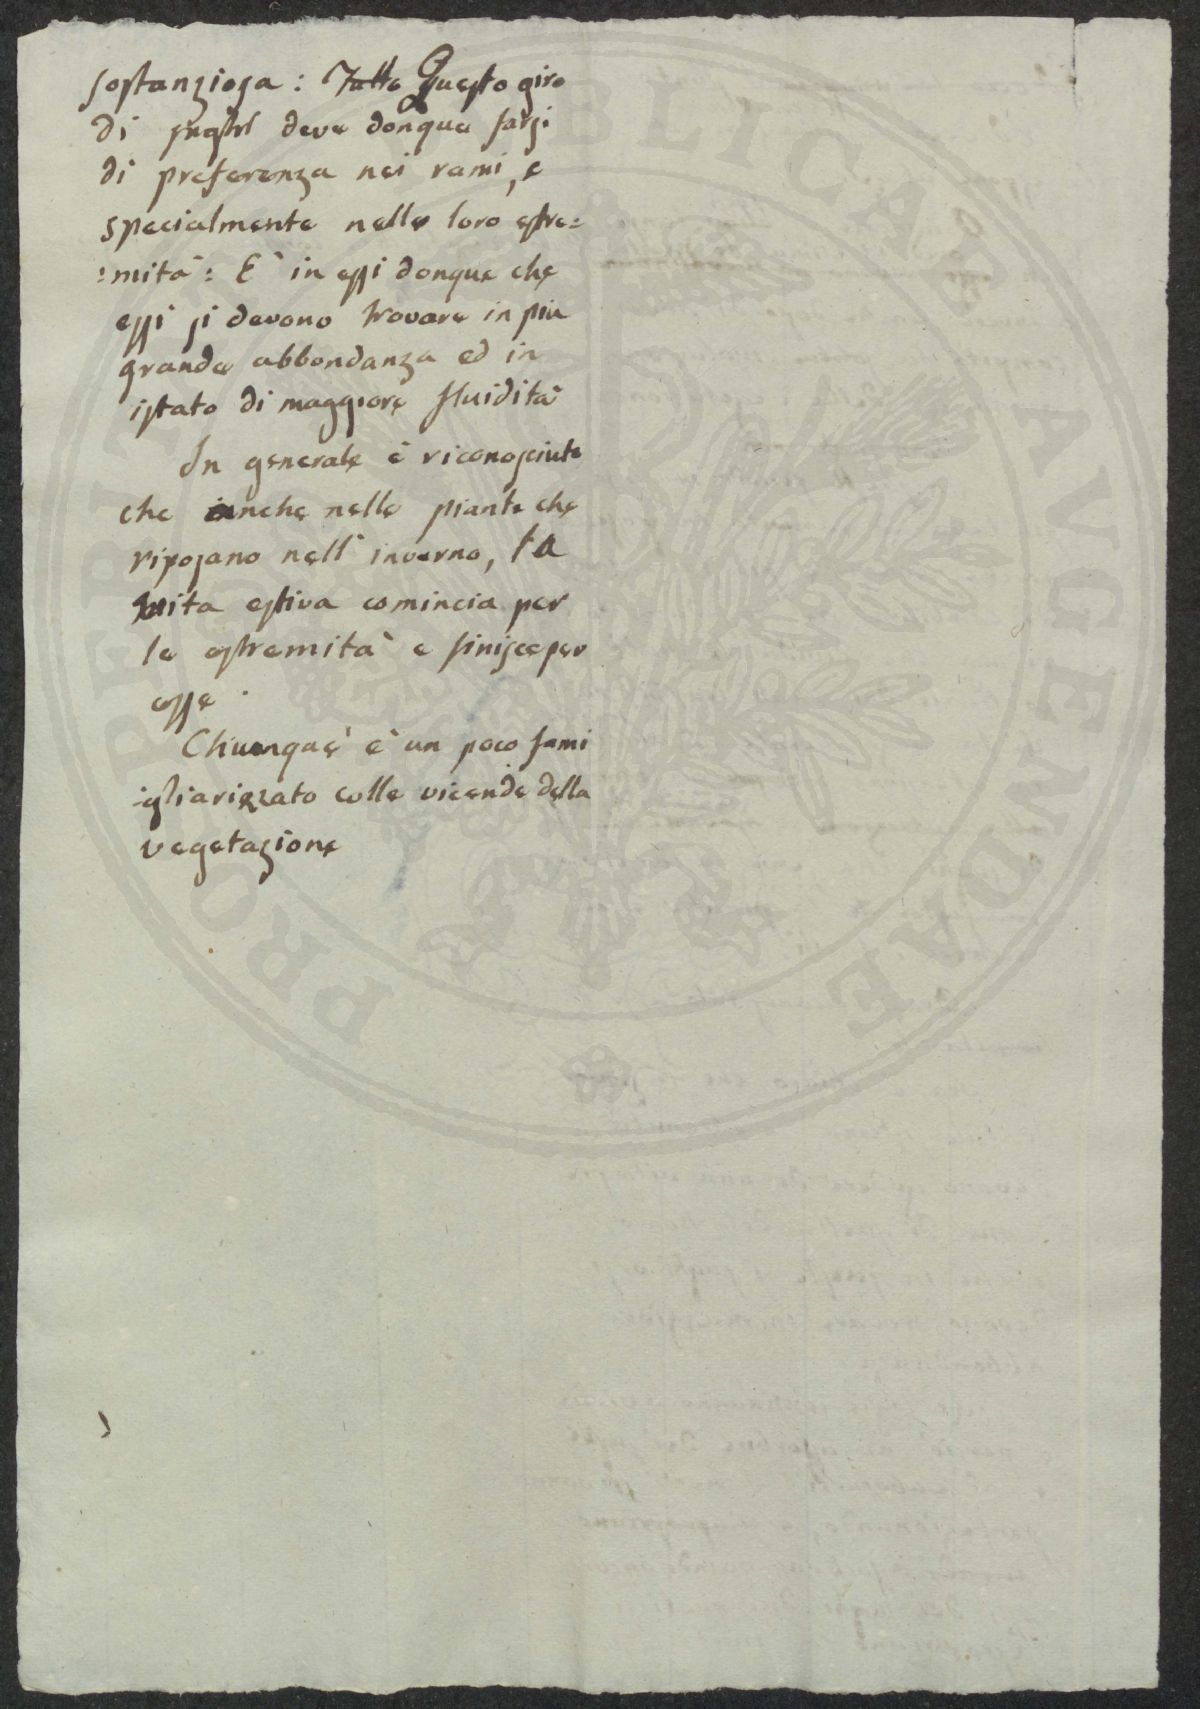 sostanziosa: Tutto Questo giro
di sughi deve donque farsi
di preferenza nei rami, e
specialmente nelle loro estre=
:mità: È in essi donque che
essi si devono trovare in più
grande abbondanza ed in
istato di maggiore fluidità
In generale è riconosciuto
che anche nelle piante che
riposano nell'inverno, la
vita estiva comincia per
le estremità e finisce per
esse.
Chiunque è un poco fami
:gliarizzato colle vicende della
vegetazione
PROPRIETA PUBLICAE AVGENDAE